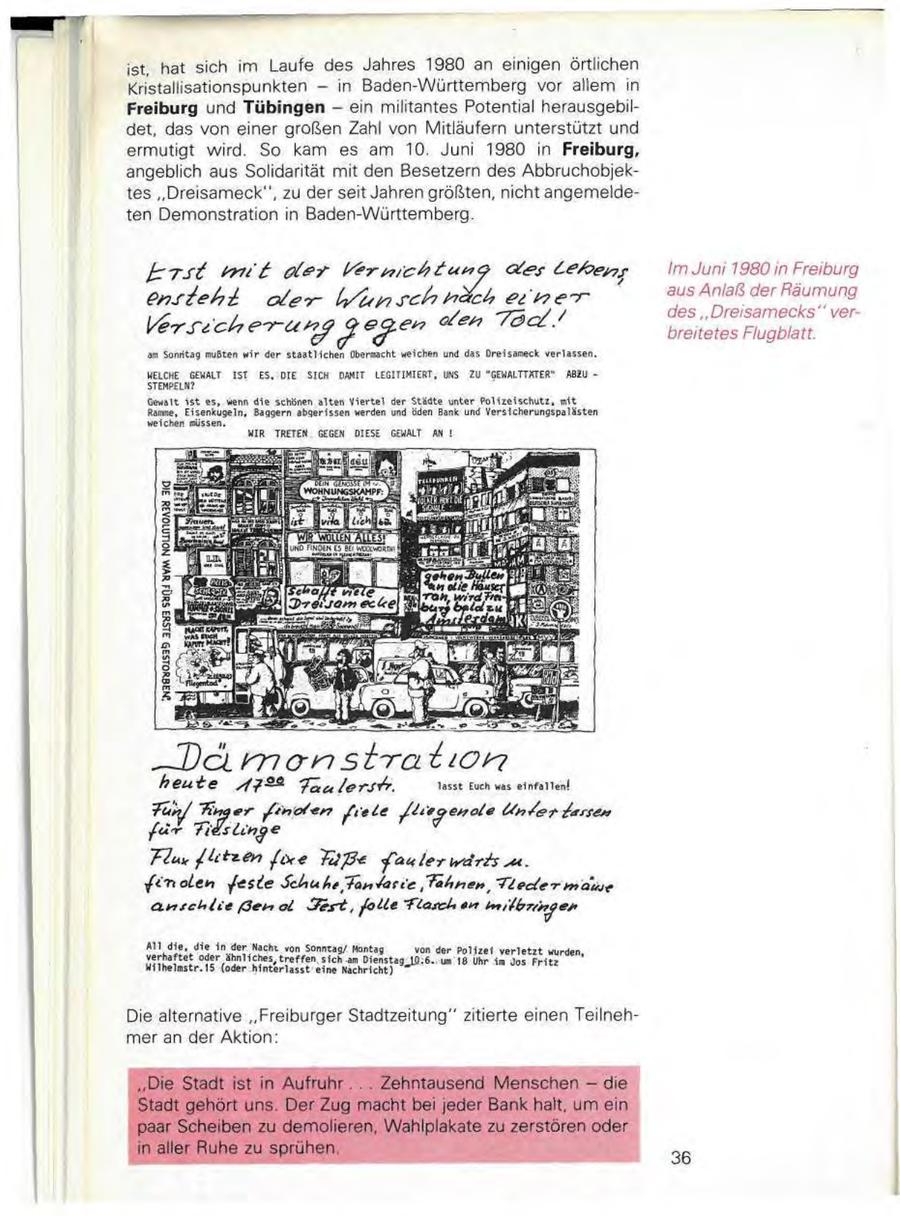 ist, hat sich im Laufe des Jahres 1980 an einigen örtlichen
Kristallisationspunkten – in Baden-Württemberg vor allem in
Freiburg und Tübingen – ein militantes Potential herausgebil-
det, das von einer großen Zahl von Mitläufern unterstützt und
ermutigt wird. So kam es am 10. Juni 1980 in Freiburg,
angeblich aus Solidarität mit den Besetzern des Abbruchobjek-
tes „Dreisameck", zu der seit Jahren größten, nicht angemelde-
ten Demonstration in Baden-Württemberg.
Im Juni 1980 in Freiburg
aus Anlaß der Räumung
des „Dreisamecks" ver-
breitetes Flugblatt.
Erst mit der Vernichtung des Lebens,
ensteht der Wunsch nach einer
Versicherung gegen den Tod!
am Sonntag mußten wir der staatlichen Obermacht weichen und das Dreisameck verlassen.
WELCHE GEWALT IST ES, DIE SICH DAMIT LEGITIMIERT, UNS ZU "GEWALTTÄTER" ABZU -
STEMPELN?
Gewalt ist es, wenn die schönen alten Viertel der Städte unter Polizeischutz, mit
Ramme, Eisenkugeln, Baggern abgerissen werden und öden Bank und Versicherungspalästen
weichen müssen.
WIR TRETEN GEGEN DIESE GEWALT AN !
DIE REVOLUTION WAR FÜRS ERSTE GESTORBEN.
DEIN GENOSSE IM
WOHNUNGSKAMPF:
Frauen
WIR WOLLEN ALLES!
UND FINDEN ES BEI WOOLWORTH!
Schafft viele
Dreisamecke!
gehen Bullen
an die Häuser
ran, wird Frei-
burg bald zu
Amsterdam
MACHT KAPUTT,
WAS EUCH
KAPUTT MACHT!
Fliegentod
Dämonstration
heute 17⁰⁰ Faulerstr. lasst Euch was einfallen!
Fünf Finger finden fiele fliegende Untertassen
für Fieslinge
Flux flitzen fixe Füße faulerwärts u.
finden feste Schuhe, Fantasie, Fahnen, Fledermäuse
anschließend Fest, folle Flaschen mitbringen
All die, die in der Nacht von Sonntag/ Montag von der Polizei verletzt wurden,
verhaftet oder ähnliches, treffen sich am Dienstag 10.6. um 18 Uhr im Jos Fritz
Wilhelmstr.15 (oder hinterlasst eine Nachricht)
Die alternative „Freiburger Stadtzeitung" zitierte einen Teilneh-
mer an der Aktion:
„Die Stadt ist in Aufruhr . . . Zehntausend Menschen – die
Stadt gehört uns. Der Zug macht bei jeder Bank halt, um ein
paar Scheiben zu demolieren, Wahlplakate zu zerstören oder
in aller Ruhe zu sprühen.
36